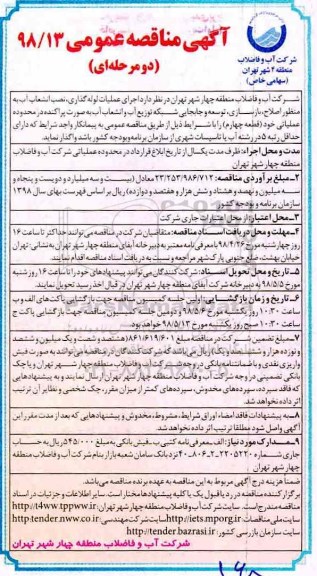 شرکت آب و فاضلاب
منطقه ۴ شهر تهران
(سهامی خاص)
آگهی مناقصه عمومی ۹۸/۱۳
(دو مرحله‌ای)
شرکت آب و فاضلاب منطقه چهار شهر تهران در نظر دارد اجرای عملیات لوله گذاری، نصب انشعاب آب به
منظور اصلاح، بازسازی، توسعه و جابجایی شبکه توزیع آب و انشعاب آب به صورت پراکنده در محدوده
عملیاتی خود (قطعه چهارم) را با شرایط ذیل از طریق مناقصه عمومی به پیمانکار واجد شرایط که دارای
حداقل رتبه ۵ در رشته آب یا تاسیسات شهری از سازمان برنامه و بودجه کشور باشد واگذار نماید.
مدت و محل اجراء: ظرف مدت یکسال از تاریخ ابلاغ قرارداد در محدوده عملیاتی شرکت آب و فاضلاب
منطقه چهار شهر تهران
۲-مبلغ برآوردی مناقصه: ۲۳/۲۵۳/۹۸۶/۷۱۲ معادل (بیست و سه میلیارد و دویست و پنجاه و
سه میلیون و نهصد و هشتاد و شش هزار و هفتصد و دوازده) ریال بر اساس فهرست بهای سال ۱۳۹۸
سازمان برنامه و بودجه کشور
۳-محل اعتبار: از محل اعتبارات جاری شرکت
۴-مهلت و محل دریافت اسناد مناقصه: متقاضیان شرکت در مناقصه می توانند حداکثر تا ساعت ۱۶
روز چهارشنبه مورخ ۹۸/۴/۲۶ با معرفی نامه معتبر به دبیرخانه آبفای منطقه چهار شهر تهران به نشانی: تهران
خیابان بهشت، ضلع جنوبی پارک شهر مراجعه و نسبت به دریافت اسناد مناقصه اقدام نمایند.
۵-تاریخ و محل تحویل اسناد: شرکت کنندگان می توانند پیشنهادهای خود را تا ساعت ۱۶ روز شنبه
مورخ ۹۸/۵/۵ به دبیرخانه شرکت آبفای منطقه چهار شهر تهران در قبال اخذ رسید تحویل نمایند.
۶-تاریخ و زمان بازگشایی: اولین جلسه کمیسیون مناقصه جهت بازگشایی پاکت های الف و ب
ساعت ۱۰:۳۰ روز یکشنبه مورخ ۹۸/۵/۶ و دومین جلسه کمیسیون مناقصه جهت بازگشایی پاکت ج
ساعت ۱۰:۳۰ صبح روز یکشنبه مورخ ۹۸/۵/۱۳ خواهد بود.
۷-مبلغ تضمین شرکت در مناقصه مبلغ ۸۶۱/۶۱۹/۶۰۱ (هشتصد و شصت و یک میلیون و ششصد
و نوزده هزار و ششصد و یک) ریال می باشد که شرکت کنندگان در مناقصه می توانند به صورت فیش
واریزی نقدی و یا ضمانتنامه بانکی در وجه شرکت آب و فاضلاب منطقه چهار شهر تهران و یا چک
بانکی تضمینی در وجه شرکت آب و فاضلاب منطقه چهار شهر تهران ارسال نمایند و به پیشنهادهایی
که فاقد سپرده، سپرده‌های مخدوش، سپرده‌های کمتر از میزان مقرر، چک شخصی و نظایر آن ترتیب
اثر داده نخواهد شد.
۸-به پیشنهادات فاقد امضاء، اوراق شرایط، مشروط، مخدوش و پیشنهادهایی که بعد از مدت مقرر این
آگهی واصل شود مطلقا ترتیب اثر داده نخواهد شد.
۹-مدارک مورد نیاز: الف. معرفی نامه کتبی ب. فیش بانکی به مبلغ ۵۴۵/۰۰۰ ریال به حساب
جاری شماره نزد بانک سامان شعبه بازار بنام شرکت آب و فاضلاب منطقه
چهار شهر تهران
ضمنا هزینه درج آگهی مربوط به این مناقصه به عهده برنده مناقصه می باشد.
برگزارکننده مناقصه در رد یا قبول یک یا کلیه پیشنهادها مختار است. سایر اطلاعات و جزئیات در اسناد
مناقصه مندرج است. سایت شرکت آب و فاضلاب منطقه چهار شهر تهران: http://t4ww.tppww.ir
سایت ملی مناقصات: http://iets.mporg.ir سایت شرکت مهندسی: http:tender.nww.co.ir
سایت سازمان بازرسی کشور: http://tender.bazrasi.ir
شرکت آب و فاضلاب منطقه چهار شهر تهران